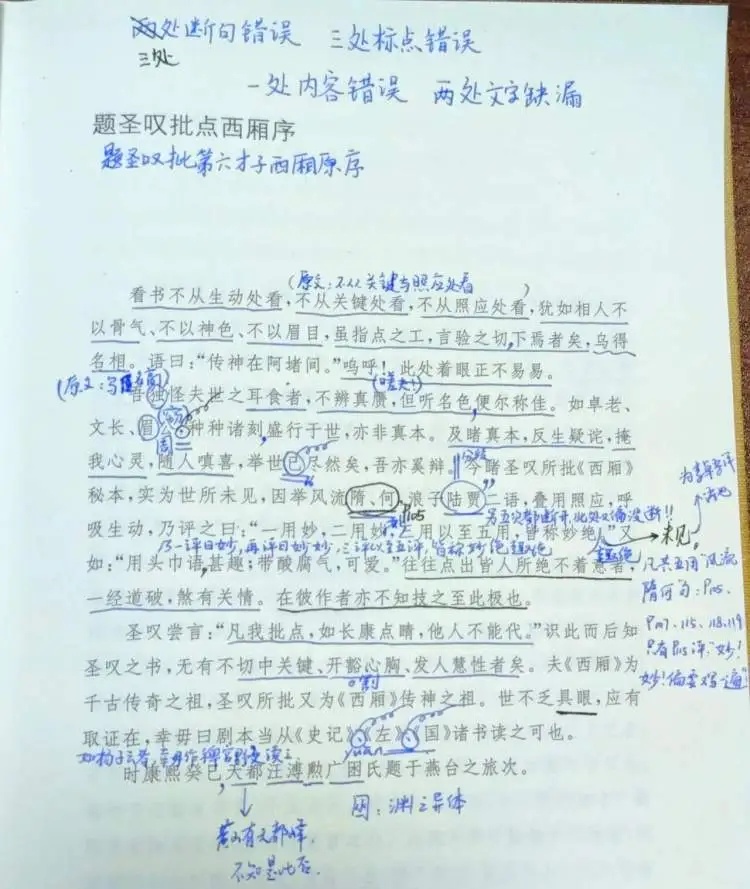 两处断句错误 三处标点错误
三处
一处内容错误 两处文字缺漏
题圣叹批点西厢序
题圣叹批第六才子西厢原序
(原文:不从关键与照应处看)
看书不从生动处看,不从关键处看,不从照应处看,犹如相人不
以骨气、不以神色、不以眉目,虽指点之工,言验之切,下焉者矣,乌得
名相。语曰:“传神在阿堵间。”呜呼!此处着眼正不易易。
(嗟夫!)
吾独怪夫世之耳食者,不辨真赝,但听名色,便尔称佳。如卓老、
文长、眉公种种诸刻,盛行于世,亦非真本。及睹真本,反生疑诧,掩
我心灵,随人嗔喜,举世已尽然矣,吾亦奚辩。今睹圣叹所批《西厢》
秘本,实为世所未见,因举风流隋、何,浪子陆贾二语,叠用照应,呼
P105
吸生动,乃评之曰:“一用妙,二用妙,三用以至五用,皆称妙绝。”又
乃一评曰妙,再评曰妙妙,三评以至五评,皆称妙绝趣绝
如:“用头巾语,甚趣;带酸腐气,可爱。”往往点出皆人所绝不着意者,
一经道破,煞有关情。在彼作者亦不知技之至此极也。
未见
P107、115、118、119
圣叹尝言:“凡我批点,如长康点睛,他人不能代。”识此而后知
圣叹之书,无有不切中关键、开豁心胸、发人慧性者矣。夫《西厢》为
千古传奇之祖,圣叹所批又为《西厢》传神之祖。世不乏具眼,应有
取证在,幸毋曰剧本当从《史记》《左》《国》诸书读之可也。
时康熙癸巳天都汪溥勲广囦氏题于燕台之旅次。
囦:渊之异体
黄山有天都峰
不知是此否.